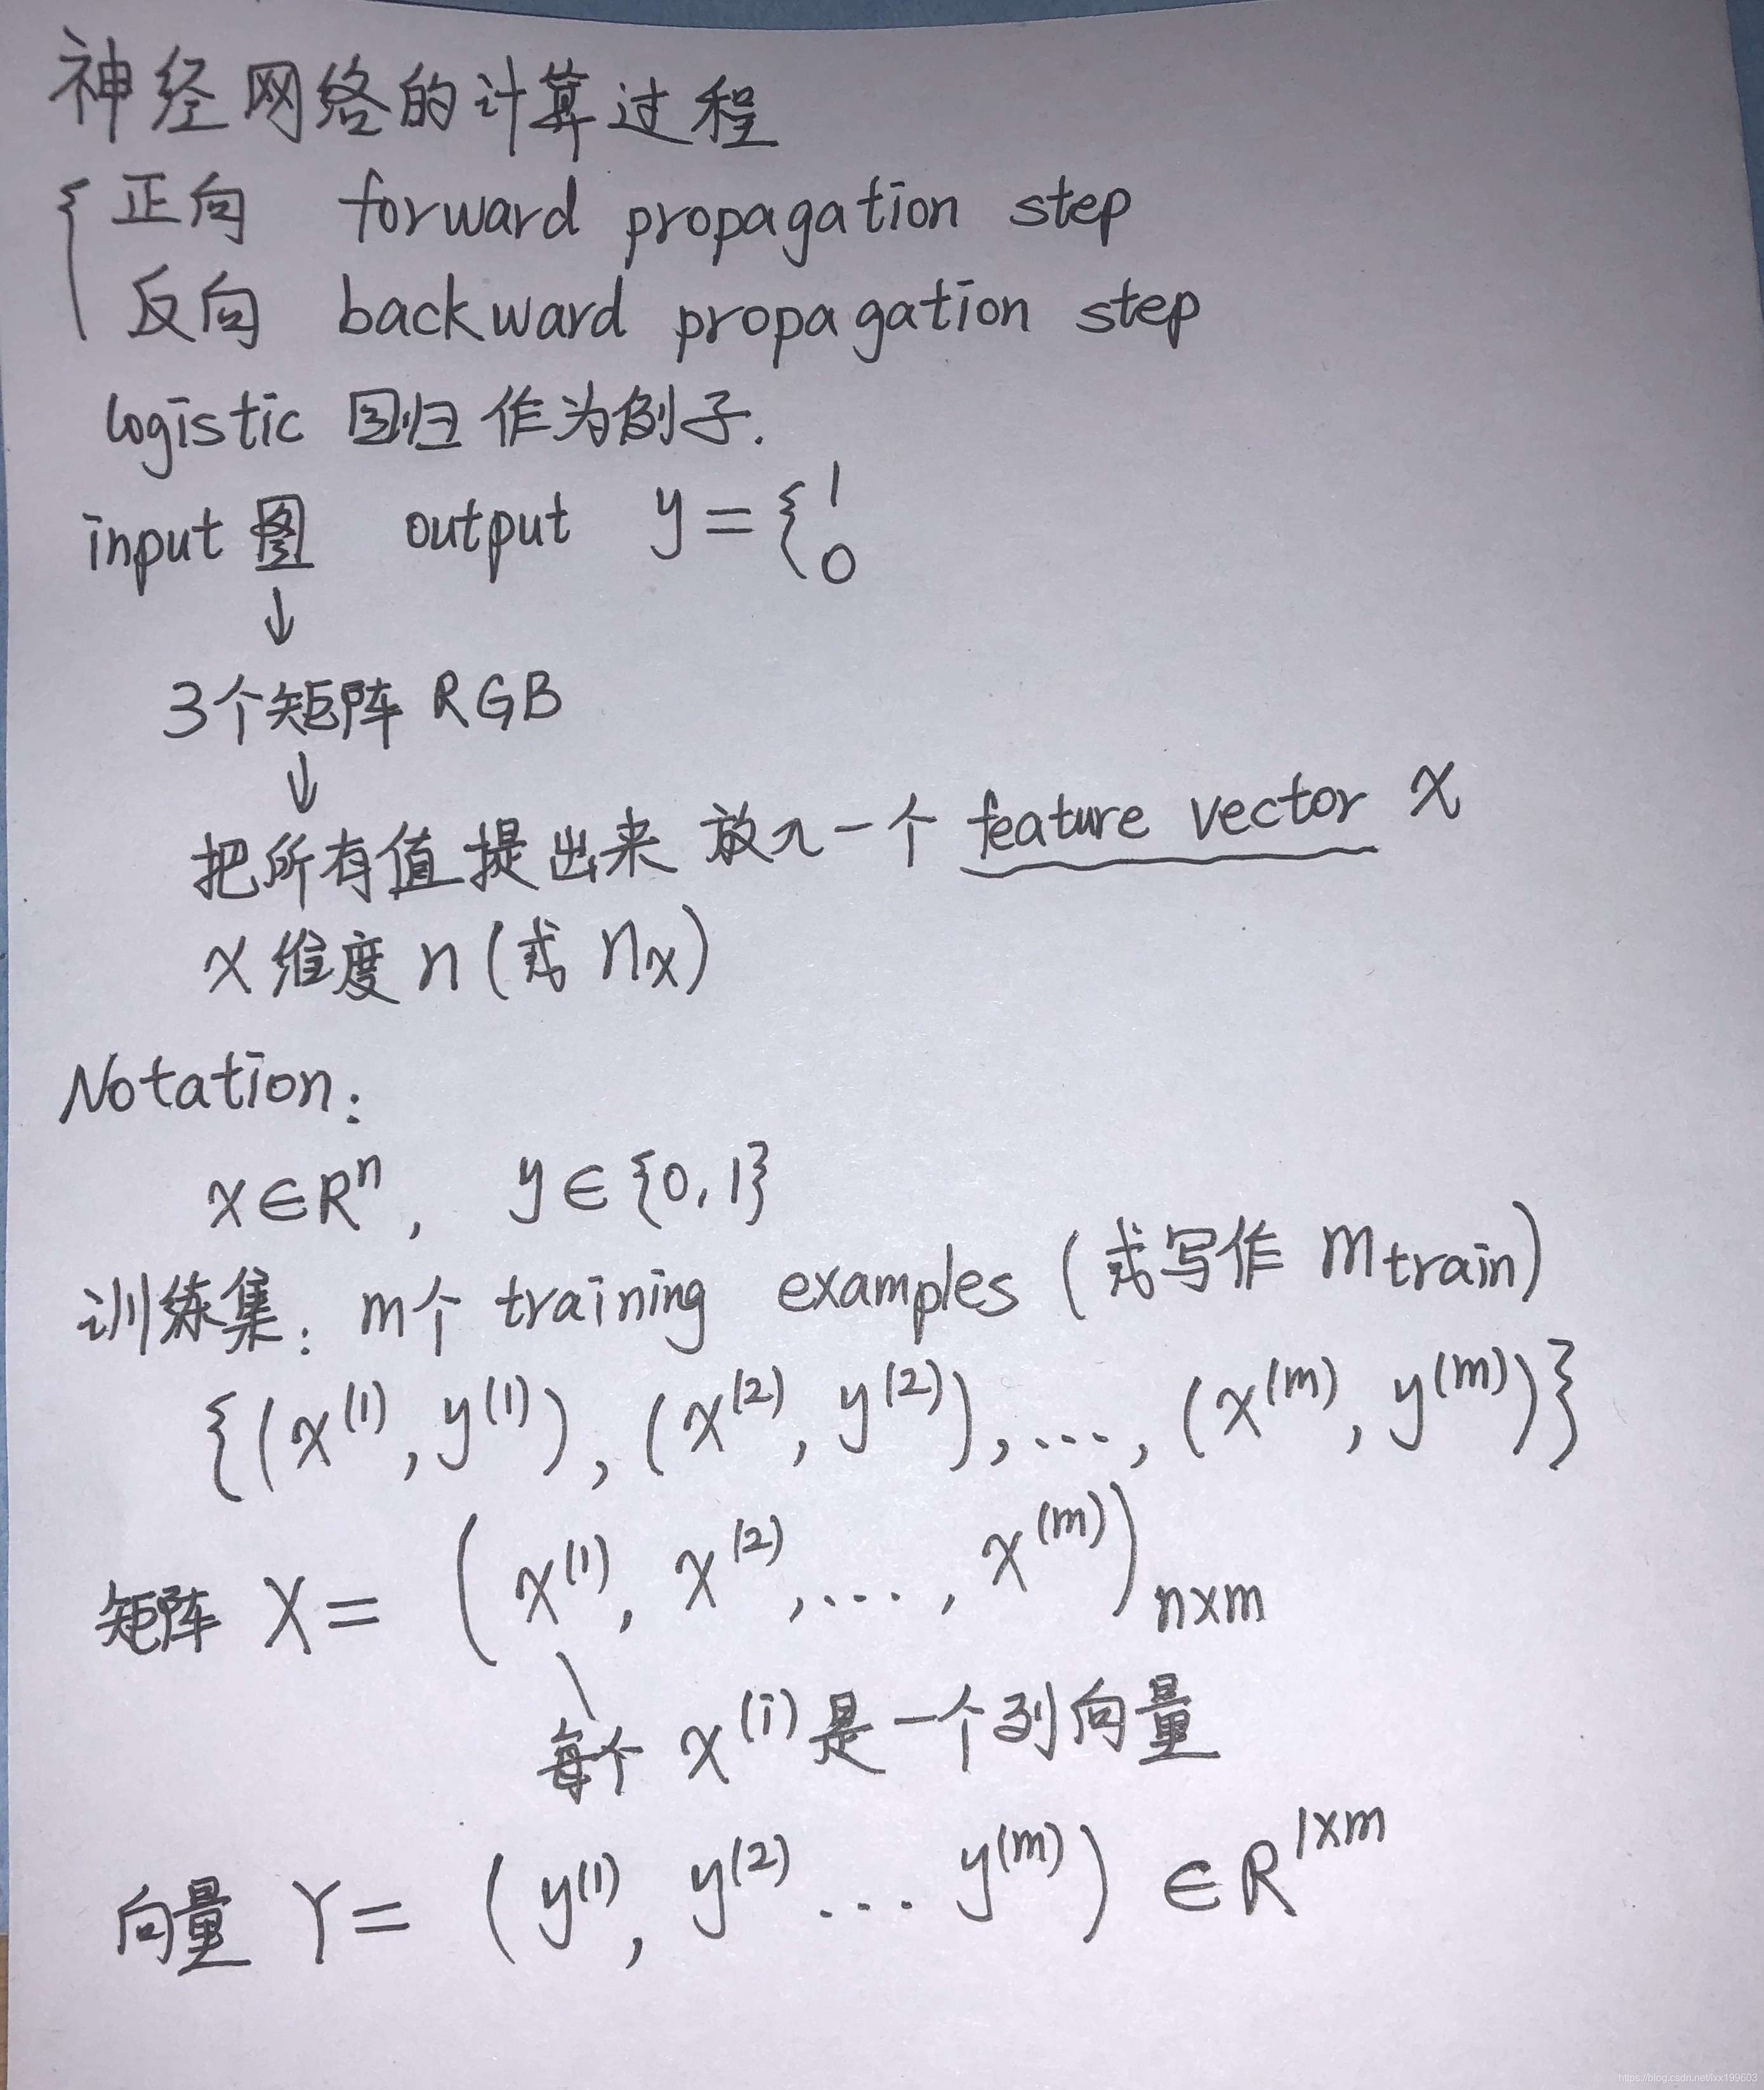 神经网络的计算过程
{ 正向 forward propagation step
反向 backward propagation step
logistic 回归作为例子.
input 图 output y = { 1
0
↓
3个矩阵 RGB
↓
把所有值提出来 放入一个 feature vector x
x 维度 n (或 nₓ)
Notation:
x∈Rⁿ, y∈{0,1}
训练集: m个 training examples (或写作 m_train)
{(x⁽¹⁾, y⁽¹⁾), (x⁽²⁾, y⁽²⁾), ..., (x⁽ᵐ⁾, y⁽ᵐ⁾)}
矩阵 X = (x⁽¹⁾, x⁽²⁾, ..., x⁽ᵐ⁾)n×m
每个 x⁽ⁱ⁾ 是一个列向量
向量 Y = (y⁽¹⁾, y⁽²⁾ ... y⁽ᵐ⁾) ∈ R^1×m
https://blog.csdn.net/lxx199603